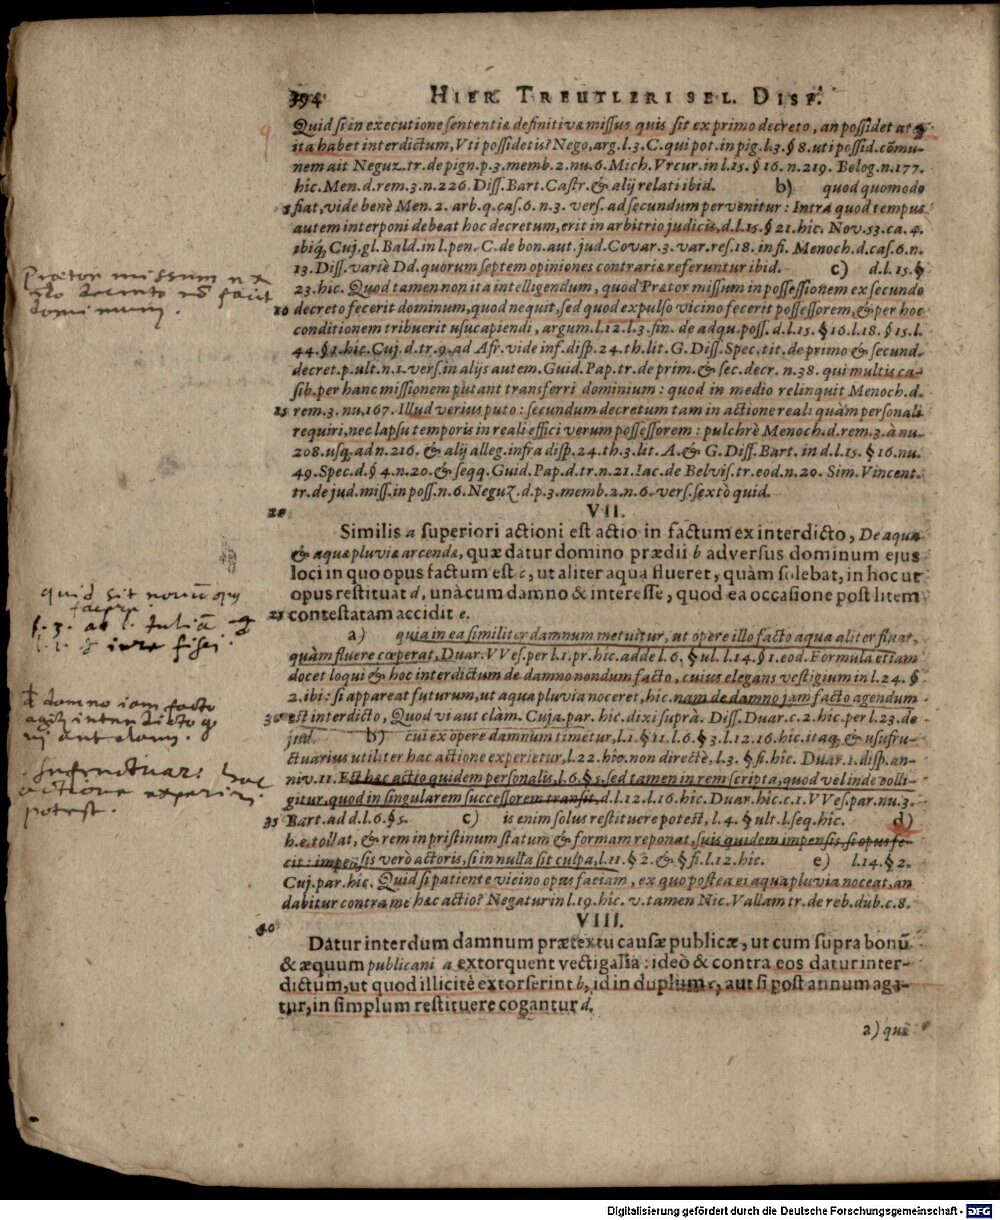 394 HIER. TREUTLERI SEL. DISP.
Quid si in executione sententiæ definitivæ missus quis sit ex primo decreto, an possidet atq;
ita habet interdictum, Vti possidetis? Nego, arg. l. 3. C. qui pot. in pig. l. 3. § 8. uti possid. cõmu-
nem ait Neguz. tr. de pign. p. 3. memb. 2. nu. 6. Mich. Vrcur. in l. 15. § 16. n. 219. Belog. n. 177.
hîc. Men. d. rem. 3. n. 226. Diss. Bart. Castr. & alij relati ibid. b) quod quomodo
5 fiat, vide benè Men. 2. arb. q. cas. 6. n. 3. vers. ad secundum pervenitur: Intra quod tempus
autem interponi debeat hoc decretum, erit in arbitrio judicis, d. l. 15. § 21. hic. Nov. 53. ca. 4.
ibiq; Cuj. gl. Bald. in l. pen. C. de bon. aut. jud. Covar. 3. var. res. 18. in fi. Menoch. d. cas. 6. n.
13. Diss. variè Dd. quorum septem opiniones contrariæ referuntur ibid. c) d. l. 15. §
23. hic. Quod tamen non ita intelligendum, quod Prætor missum in possessionem ex secundo
10 decreto fecerit dominum, quod nequit, sed quod expulso vicino fecerit possessorem, & per hoc
conditionem tribuerit usucapiendi, argum. l. 12. l. 3. fin. de adqu. poss. d. l. 15. § 16. l. 18. § 15. l.
44. § 1. hic. Cuj. d. tr. 9. ad Afr. vide inf. disp. 24. th. lit. G. Diss. Spec. tit. de primo & secund.
decret. p. ult. n. 1. vers. in alijs autem. Guid. Pap. tr. de prim. & sec. decr. n. 38. qui multis ca-
sib. per hanc missionem putant transferri dominium: quod in medio relinquit Menoch. d.
15 rem. 3. nu. 167. Illud verius puto: secundum decretum tam in actione reali quàm personali
requiri, nec lapsu temporis in reali effici verum possessorem: pulchrè Menoch. d. rem. 3. à nu.
208. usq; ad n. 216. & alij alleg. infra disp. 24. th. 3. lit. A. & G. Diss. Bart. in d. l. 15. § 16. nu.
49. Spec. d. § 4. n. 20. & seqq. Guid. Pap. d. tr. n. 21. Iac. de Belvis. tr. eod. n. 20. Sim. Vincent.
tr. de jud. miss. in poss. n. 6. Neguz. d. p. 3. memb. 2. n. 6. vers. sextò quid.
20 VII.
Similis a superiori actioni est actio in factum ex interdicto, De aqua
& aquæ pluviæ arcendæ, quæ datur domino prædii b adversus dominum ejus
loci in quo opus factum est c, ut aliter aqua flueret, quàm solebat, in hoc ut
opus restituat d, unà cum damno & interesse, quod ea occasione post litem
25 contestatam accidit e.
a) quia in ea similiter damnum metuitur, ut opere illo facto aqua aliter fluat,
quàm fluere cœperat, Duar. VVes. per l. 1. pr. hic. adde l. 6. § ul. l. 14. § 1. eod. Formula etiam
docet loqui & hoc interdictum de damno nondum facto, cuius elegans vestigium in l. 24. §
2. ibi: si appareat futurum, ut aqua pluvia noceret, hic. nam de damno jam facto agendum
30 est interdicto, Quod vi aut clàm. Cuja. par. hic. dixi suprà. Diss. Duar. c. 2. hic. per l. 23. de
jud. b) cui ex opere damnum timetur, l. 1. § 11. l. 6. § 3. l. 12. 16. hic. itaq; & usufru-
ctuarius utiliter hac actione experietur, l. 22. hîc. non directè, l. 3. § fi. hic. Duar. 1. disp. an-
niv. 11. Est hæc actio quidem personalis, l. 6. § 5. sed tamen in rem scripta, quod vel inde colli-
gitur, quod in singularem successorem transit, d. l. 12. l. 16. hic. Duar. hîc. c. 1. VVes. par. nu. 3.
35 Bart. ad d. l. 6. § 5. c) is enim solus restituere potest, l. 4. § ult. l. seq. hic. d)
h. e. tollat, & rem in pristinum statum & formam reponat, suis quidem impensis, si opus fe-
cit: impensis verò actoris, si in nulla sit culpa, l. 11. § 2. & § fi. l. 12. hic. e) l. 14. § 2.
Cuj. par. hîc. Quid si patiente vicino opus faciam, ex quo postea ei aqua pluvia noceat, an
dabitur contra me hæc actio? Negatur in l. 19. hîc. v. tamen Nic. Vallam tr. de reb. dub. c. 8.
VIII.
40 Datur interdum damnum prætextu causæ publicæ, ut cum supra bonũ
& æquum publicani a extorquent vectigalia: ideò & contra eos datur inter-
dictum, ut quod illicitè extorserint b, id in duplum c, aut si post annum aga-
tur, in simplum restituere cogantur d.
a) quæ
Prætor missum ex
2do decreto nõ facit
dominum.
quid sit novũ opus
l. 3. ad l. Iuliã
de iure fisci.
de damno iam facto
agitur interdicto quod
vi aut clam.
Usufructuarius hac
actione experiri
potest.
Digitalisierung gefördert durch die Deutsche Forschungsgemeinschaft - DFG